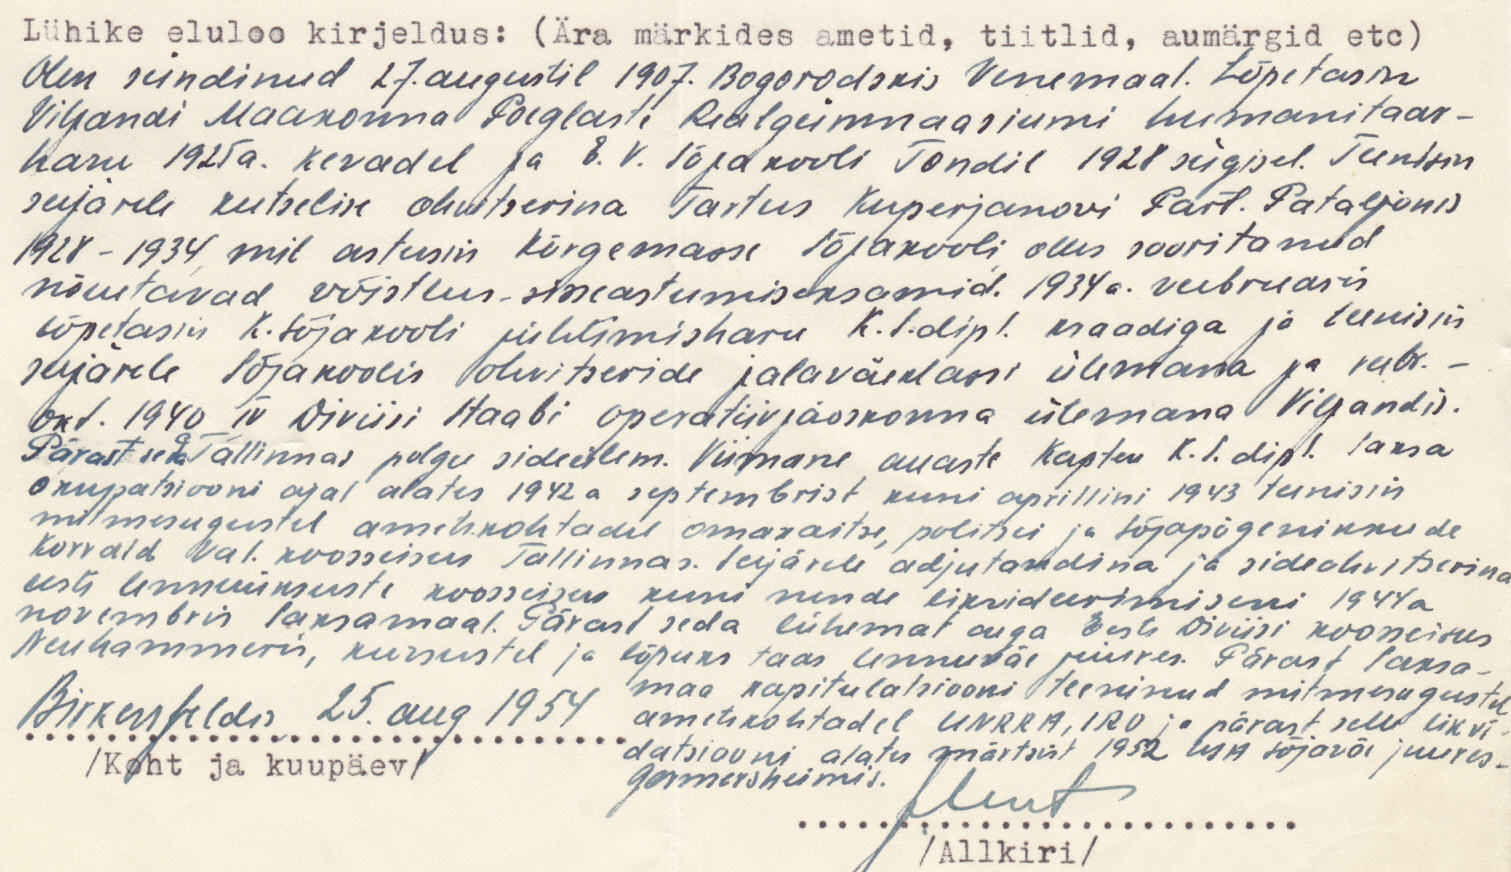 Lühike eluloo kirjeldus: (Ära märkides ametid, tiitlid, aumärgid etc)
Olen sündinud 27. augustil 1907. Bogorodskis Venemaal. Lõpetasin
Viljandi Maakonna Poeglaste Realgümnaasiumi humanitaar-
haru 1925a. kevadel ja E. V. Sõjakooli Tondil 1928 sügisel. Teenisin
seejärele kutselise ohvitserina Tartus Kuperjanovi Part. Pataljonis
1928-1934, mil astusin Kõrgemasse Sõjakooli, olles sooritanud
nõuetavad võistlus-sisseastumiseksamid. 1934a. veebruaris
lõpetasin K. Sõjakooli juhtimisharu K.S.dipl. kraadiga ja teenisin
seejärele Sõjakoolis ohvitseride jalaväeklassi ülemana ja veebr.-
okt. 1940 IV Diviisi Staabi operatiivjaoskonna ülemana Viljandis.
Pärast seda Tallinnas polgu sideülem. Viimane auaste Kapten K.S.dipl. Saksa
okupatsiooni ajal alates 1942a septembrist kuni aprillini 1943 teenisin
mitmesugustel ametikohtadel omakaitse, politsei ja sõjapõgenikkude
Korrald Val. koosseisus Tallinnas. Seejärele adjutandina ja sideohvitserina
eesti lennuüksuste koosseisus kuni nende likvideerimiseni 1944a
novembris Saksamaal. Pärast seda lühemat aega Eesti Diviisi koosseisus
Neuhammeris, kursustel ja lõpuks taas lennuväe juures. Pärast Saksa-
maa kapitulatsiooni teeninud mitmesugustel
ametikohtadel UNRRA, IRO ja pärast selle likvi-
datsiooni alates märtsist 1952 USA Sõjaväe juures-
Germersheimis.
Birkenfeldis 25. aug 1954
/Koht ja kuupäev/
/Allkiri/